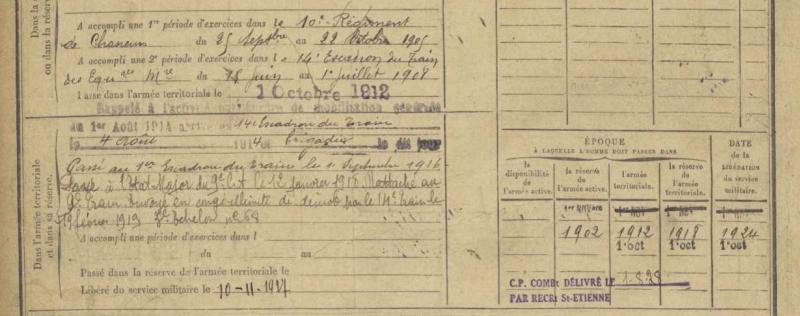 Dans la
ou dans la réserve
A accompli une 1re période d'exercices dans le 10e Régiment
de Chasseurs du 25 Septbre au 22 Octobre 1905
A accompli une 2e période d'exercices dans l 14e Escadron du Train
des Equages Mre du 15 juin au 1er juillet 1908
Passé dans l'armée territoriale le 1 Octobre 1912
Rappelé à l'activité de mobilisation générale
du 1er Août 1914 au 14e Escadron du Train
le 4 août 1914 brigadier le dit jour
Dans l'armée territoriale
et dans sa réserve.
Passé au 1er Escadron du Train le 1 Septembre 1916
Passé à l'Etat-Major du le 1er janvier 1918. Rattaché au
Train Envoyé en congé illimité de démob par le 14e Train le
19 février 1919 2e échelon no 68
A accompli une période d'exercices dans l
du au
Passé dans la réserve de l'armée territoriale le
Libéré du service militaire le 10-11-1927
ÉPOQUE
À LAQUELLE L'HOMME DOIT PASSER DANS
DATE
DE LA
LIBÉRATION
du service
militaire.
la disponibilité
de
l'armée active.
la réserve
de
l'armée active.
l'armée
territoriale.
la réserve
de
l'armée
territoriale.
1902 1912 1918 1924
1 oct 1 oct 1 oct
C.P. COMBt DÉLIVRÉ LE
PAR RECRt St-ETIENNE